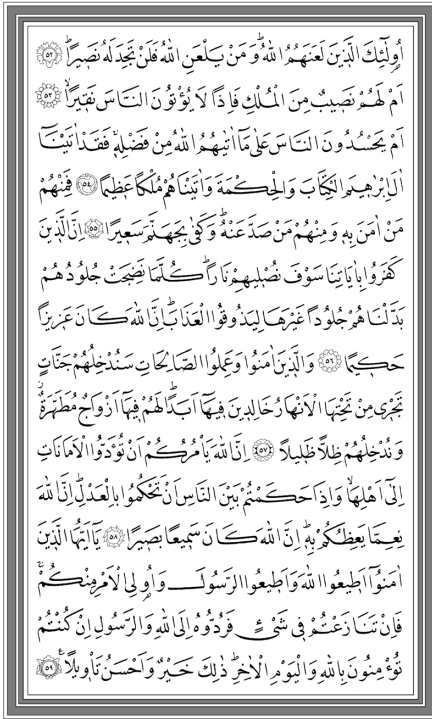 اُو۬لٰٓئِكَ الَّذ۪ينَ لَعَنَهُمُ اللّٰهُۜ وَمَنْ يَلْعَنِ اللّٰهُ فَلَنْ تَجِدَ لَهُ نَص۪يراًۜ ﴿٥٢﴾
اَمْ لَهُمْ نَص۪يبٌ مِنَ الْمُلْكِ فَاِذاً لَا يُؤْتُونَ النَّاسَ نَق۪يراًۙ ﴿٥٣﴾
اَمْ يَحْسُدُونَ النَّاسَ عَلٰى مَٓا اٰتٰيهُمُ اللّٰهُ مِنْ فَضْلِه۪ۚ فَقَدْ اٰتَيْنَٓا
اٰلَ اِبْرٰه۪يمَ الْكِتَابَ وَالْحِكْمَةَ وَاٰتَيْنَاهُمْ مُلْكاً عَظ۪يماً ﴿٥٤﴾ فَمِنْهُمْ
مَنْ اٰمَنَ بِه۪ وَمِنْهُمْ مَنْ صَدَّ عَنْهُۜ وَكَفٰى بِجَهَنَّمَ سَع۪يراً ﴿٥٥﴾ اِنَّ الَّذ۪ينَ
كَفَرُوا بِاٰيَاتِنَا سَوْفَ نُصْل۪يهِمْ نَاراًۜ كُلَّمَا نَضِجَتْ جُلُودُهُمْ
بَدَّلْنَاهُمْ جُلُوداً غَيْرَهَا لِيَذُوقُوا الْعَذَابَۜ اِنَّ اللّٰهَ كَانَ عَز۪يزاً
حَك۪يماً ﴿٥٦﴾ وَالَّذ۪ينَ اٰمَنُوا وَعَمِلُوا الصَّالِحَاتِ سَنُدْخِلُهُمْ جَنَّاتٍ
تَجْر۪ي مِنْ تَحْتِهَا الْاَنْهَارُ خَالِد۪ينَ ف۪يهَٓا اَبَداًۜ لَهُمْ ف۪يهَٓا اَزْوَاجٌ مُطَهَّرَةٌۘ
وَنُدْخِلُهُمْ ظِلاًّ ظَل۪يلاً ﴿٥٧﴾ اِنَّ اللّٰهَ يَأْمُرُكُمْ اَنْ تُؤَدُّوا الْاَمَانَاتِ
اِلٰٓى اَهْلِهَاۙ وَاِذَا حَكَمْتُمْ بَيْنَ النَّاسِ اَنْ تَحْكُمُوا بِالْعَدْلِۜ اِنَّ اللّٰهَ
نِعِمَّا يَعِظُكُمْ بِه۪ۜ اِنَّ اللّٰهَ كَانَ سَم۪يعاً بَص۪يراً ﴿٥٨﴾ يَٓا اَيُّهَا الَّذ۪ينَ
اٰمَنُٓوا اَط۪يعُوا اللّٰهَ وَاَط۪يعُوا الرَّسُولَ وَاُو۬لِي الْاَمْرِ مِنْكُمْۚ
فَاِنْ تَنَازَعْتُمْ ف۪ي شَيْءٍ فَرُدُّوهُ اِلَى اللّٰهِ وَالرَّسُولِ اِنْ كُنْتُمْ
تُؤْمِنُونَ بِاللّٰهِ وَالْيَوْمِ الْاٰخِرِۜ ذٰلِكَ خَيْرٌ وَاَحْسَنُ تَأْو۪يلاً۟ ﴿٥٩﴾